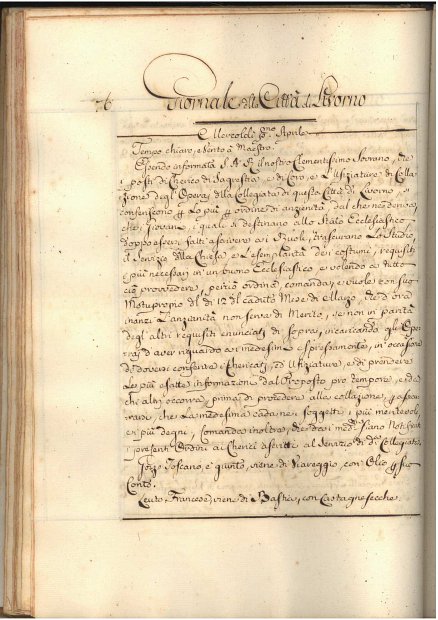 Giornale della Città di Livorno
Mercoledì pmo Aprile
Tempo chiaro, e Vento a Maestro.
Essendo informata S. A. R. il nostro Clementissimo Sovrano, che i
posti di Cherico di Sagrestia, e di Coro, e l'Ufiziature di Colla-
zione degl' Operaj della Collegiata di questa Città di Livorno, si
conferiscono lo più ordine di anzianità, dal che ne deriva,
che i Giovani, i quali si destinano allo Stato Ecclesiastico,
doppo essersi fatti ascrivere ai Ruoli, trascurano lo Studio,
il Servizio della Chiesa, e l'esemplarità dei costumi, requisiti
i più necessarj in un buono Ecclesiastico, e volendo ea tutto
ciò provvedere, perciò ordina, comanda, e vuole con suo
Motuproprio del dì 12 del caduto Mese di Marzo, che d'ora
inanzi l'anzianità non serva di Merito, se non in parità
degl' altri requisiti enunciati di sopra, incaricando gl' Ope-
raj d' aver riguardo ai medesimi espressamente, in occasione
di doversi conferire i Chericati, ed Ufiziature, e di prendere
le più esatte informazioni dal Proposto pro tempore, e da
chi altri occorra, prima di procedere alla collazione, assi-
curarsi, che la medesima cada nei soggetti i più meritevoli,
e i più degni, comanda inoltre, che siano Notificati
i presenti Ordini ai Cherici ascritti al Servizio di da Collegiata.
Toscano è giunto, viene di Viareggio, con Olio
Conto.
Leuto Francese, viene di Bastia, con Castagne secche.